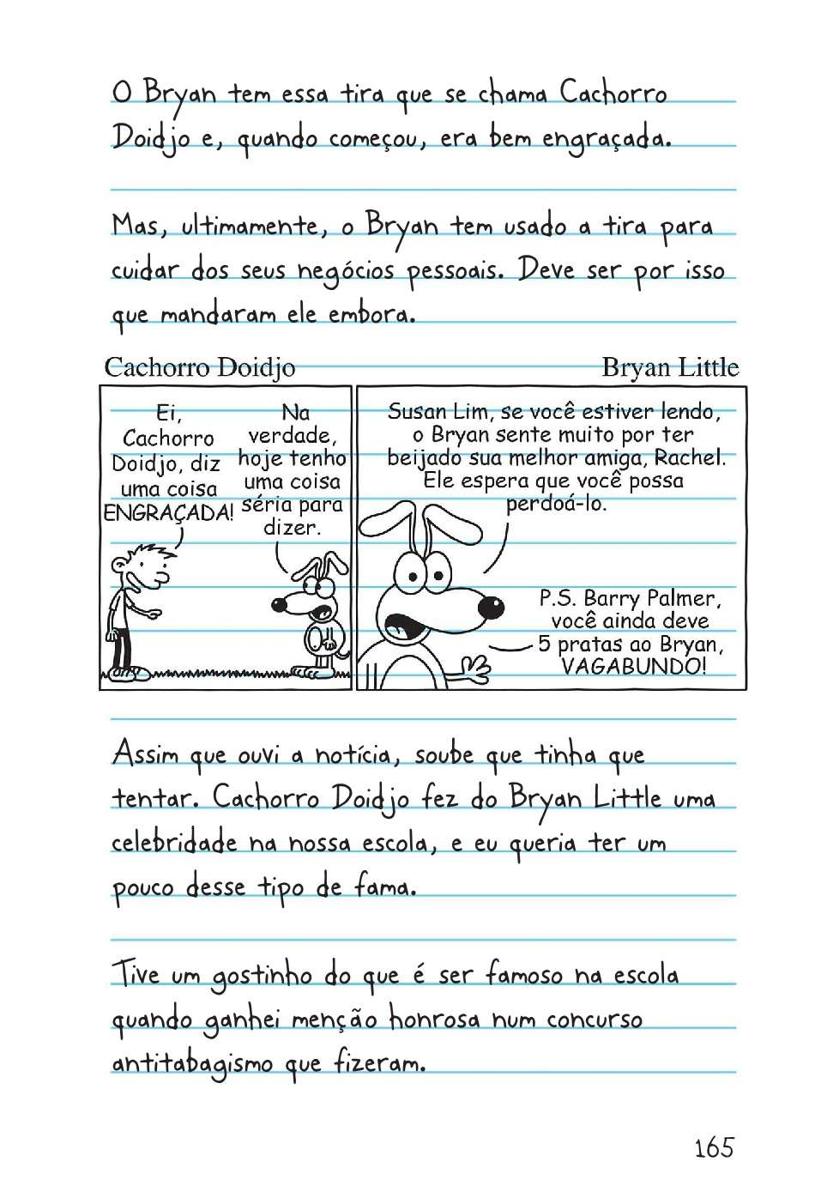 O Bryan tem essa tira que se chama Cachorro
Doidjo e, quando começou, era bem engraçada.
Mas, ultimamente, o Bryan tem usado a tira para
cuidar dos seus negócios pessoais. Deve ser por isso
que mandaram ele embora.
Cachorro Doidjo
Bryan Little
Ei,
Cachorro
Doidjo, diz
uma coisa
ENGRAÇADA!
Na
verdade,
hoje tenho
uma coisa
séria para
dizer.
Susan Lim, se você estiver lendo,
o Bryan sente muito por ter
beijado sua melhor amiga, Rachel.
Ele espera que você possa
perdoá-lo.
P.S. Barry Palmer,
você ainda deve
5 pratas ao Bryan,
VAGABUNDO!
Assim que ouvi a notícia, soube que tinha que
tentar. Cachorro Doidjo fez do Bryan Little uma
celebridade na nossa escola, e eu queria ter um
pouco desse tipo de fama.
Tive um gostinho do que é ser famoso na escola
quando ganhei menção honrosa num concurso
antitabagismo que fizeram.
165